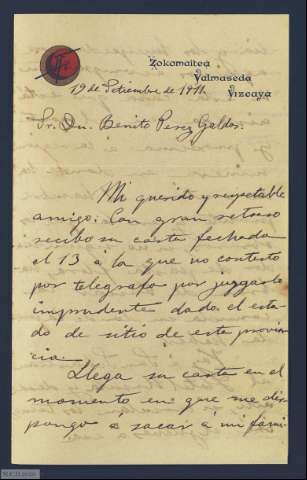 Zokomaitea
Valmaseda
Vizcaya
19 de Setiembre de 1911.
Sr. Dn. Benito Perez Galdos.
Mi querido y respetable
amigo: Con gran retraso
recibo su carta fechada
el 13 á la que no contesto
por telegrafo por juzgarlo
imprudente dado el esta-
do de sitio de esta provin-
cia.
Llega su carta en el
momento en que me dis-
pongo á sacar á mi fami-